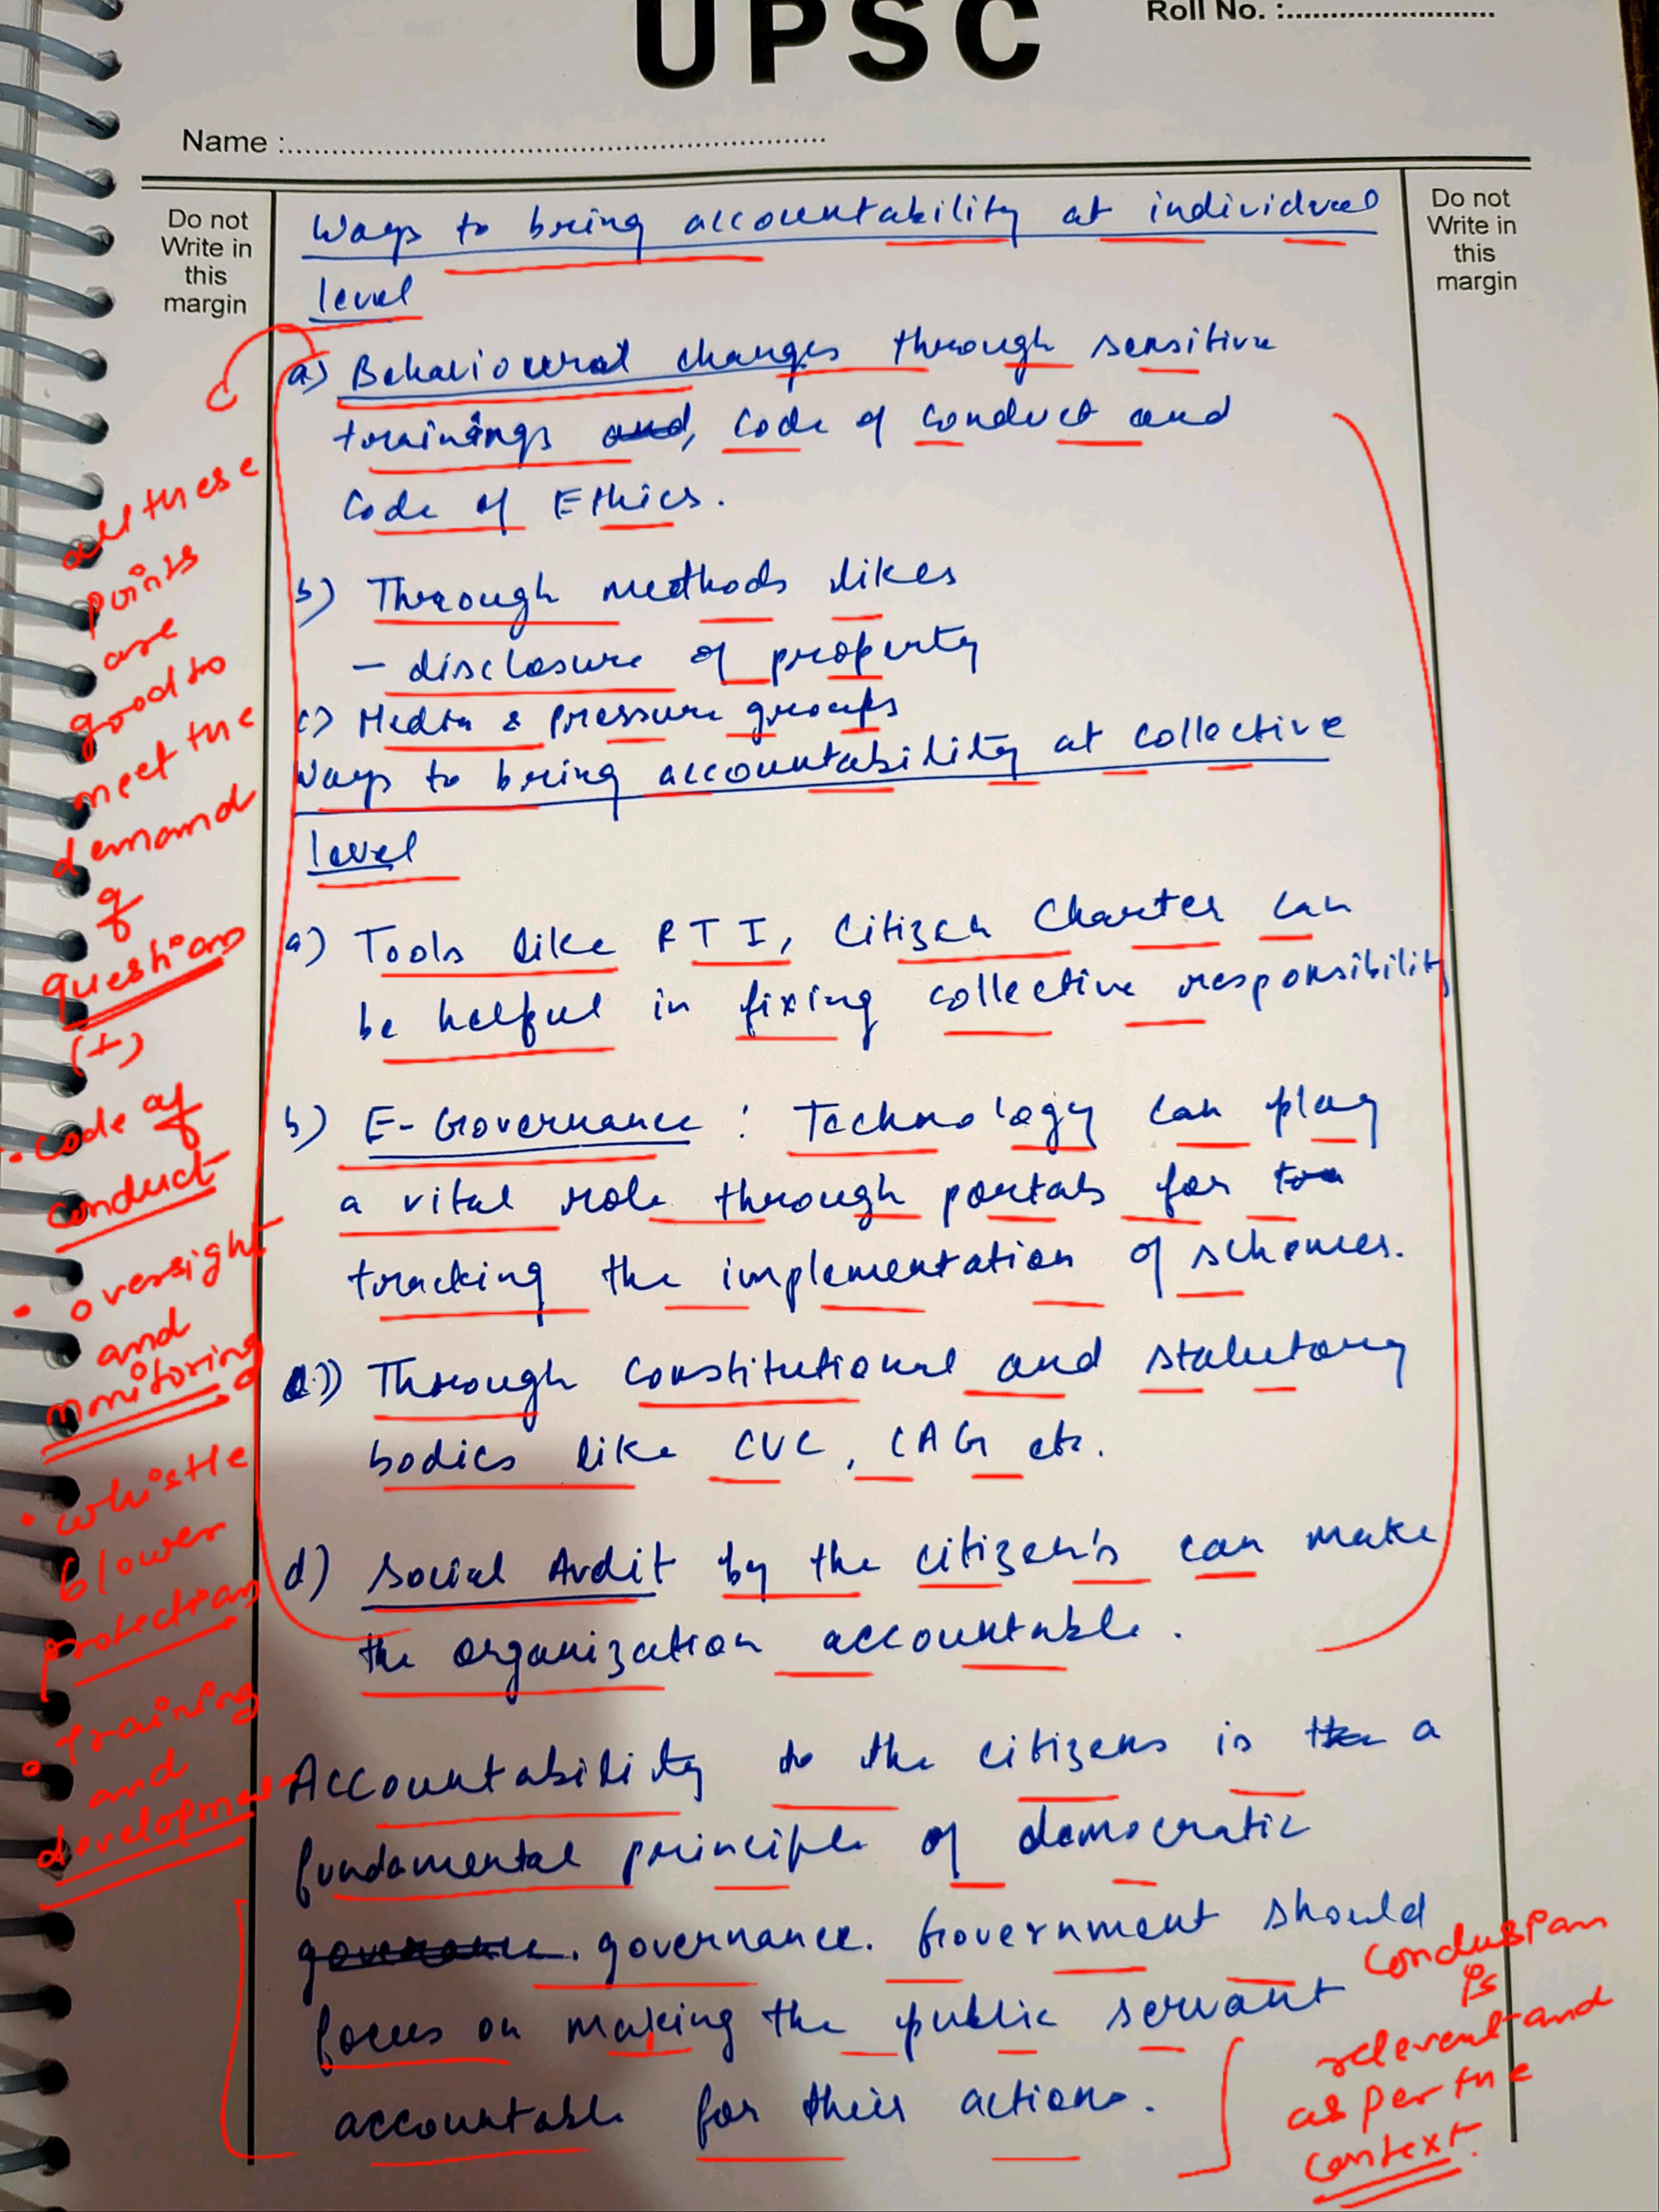 UPSC
Roll No. :..........................
Name :............................................................
Do not
Write in
this
margin
Do not
Write in
this
margin
Ways to bring accountability at individual
level
a) Behavioural changes through sensitive
trainings and, Code of conduct and
Code of Ethics.
b) Through methods likes
- disclosure of property
c) Media & pressure groups
Ways to bring accountability at collective
level
a) Tools like RTI, Citizen Charter can
be helpful in fixing collective responsibility
b) E-Governance : Technology can play
a vital role through portals for
tracking the implementation of schemes.
c) Through constitutional and statutory
bodies like CVC, CAG etc.
d) Social Audit by the citizen's can make
the organization accountable.
Accountability to the citizens is the a
fundamental principle of democratic
governance. governance. Government should
focus on making the public servant
accountable for their actions.
all these
points
are
good to
meet the
demand
of
question
(+)
• code of
conduct
• oversight
and
monitoring
• whistle
blower
protection
• Training
and
development
conclusion
is
relevent and
as per the
context.